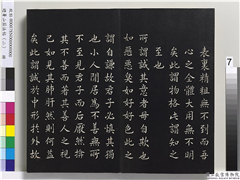 表裏精粗無不到而吾
心之全體大用無不明
矣此謂物格此謂知之
至也
所謂誠其意者毋自欺也
如惡惡臭如好好色此之
謂自謙故君子必慎其獨
也小人閒居為不善無所
不至見君子而后厭然揜
其不善而著其善人之視
己如見其肺肝然則何益
矣此謂誠於中形於外故
7